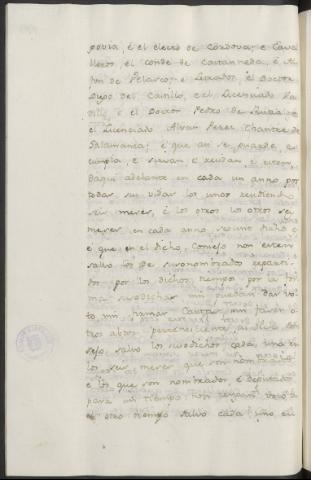 govia, é el electo de Cordova; e Cava
lleros, el conde de Castanneda, é Al
on de Velasco; e Letrados, el Doctor
Diego del Castillo, e el Licenciado Va
dillo, e el Doctor Pedro de
el Licenciado Alvar Perez Chantre de
Salamanca; é que asi se guarde, e
cumpla, e sirvan e residan é
daqui adelante en cada un anno por
todas sus vidas los unos residiendo
seis meses, é los otros los otros seis
meses en cada anno segund dicho es
é que en el dicho Consejo non esten
salvo los de susonombrados reparti
dos por los dichos tiempos por la for
ma susodicha nin puedan dar vo
to nin firmar Cartas, nin facer o
tros abtos pertenescientes al dicho Con
sejo, salvo los susodichos cada uno en
los seis meses que son nombrados
e los que son nombrados, é deputados
para un tiempo non tengan voto
el otro tiempo salvo cada uno en